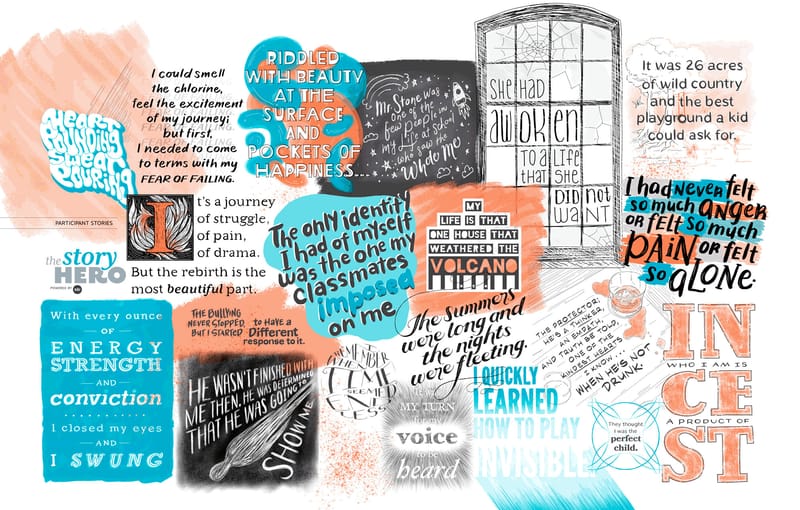 HEART
POUNDING
SWEAT
POURING
I could smell
the chlorine,
feel the excitement
of my journey;
but first,
I needed to come
to terms with my
FEAR OF FAILING.
RIDDLED
WITH BEAUTY
AT THE
SURFACE
AND
POCKETS OF
HAPPINESS...
Mr Stone was
one of the
few people in
my life at school
who saw the
whole me
SHE HAD
AWOKEN
TO A LIFE
THAT SHE
DID not
waNT
It was 26 acres
of wild country
and the best
playground a kid
could ask for.
PARTICIPANT STORIES
the story
HERO
POWERED BY
It's a journey
of struggle,
of pain,
of drama.
But the rebirth is the
most beautiful part.
The only identity
I had of myself
was the one my
classmates
imposed
on me
MY
LIFE IS THAT
ONE HOUSE THAT
WEATHERED THE
VOLCANO
I had never felt
so much anger
or felt so much
PAIN or felt
so aLONE.
With every ounce
OF
ENERGY
STRENGTH
AND
conviction
I closed my eyes
AND
I SWUNG
THE BULLYING
NEVER STOPPED,
BUT I STARTED
to Have a
Different
response to it.
HE WASN'T FINISHED WITH
ME THEN. HE WAS DETERMINED
THAT HE WAS GOING TO
SHOW ME
TIME
SEEMED
The summers
were long and
the nights
were fleeting.
MY TURN
voice
to be
heard
I QUICKLY
LEARNED
HOW TO PLAY
INVISIBLE
THE PROTECTOR:
HE'S A THINKER,
AN EMPATH,
AND TRUTH BE TOLD,
ONE OF THE
KINDEST HEARTS
I KNOW...
WHEN HE'S NOT
DRUNK.
They thought
I was the
perfect
child.
IN
WHO I AM IS
CE
A PRODUCT OF
ST